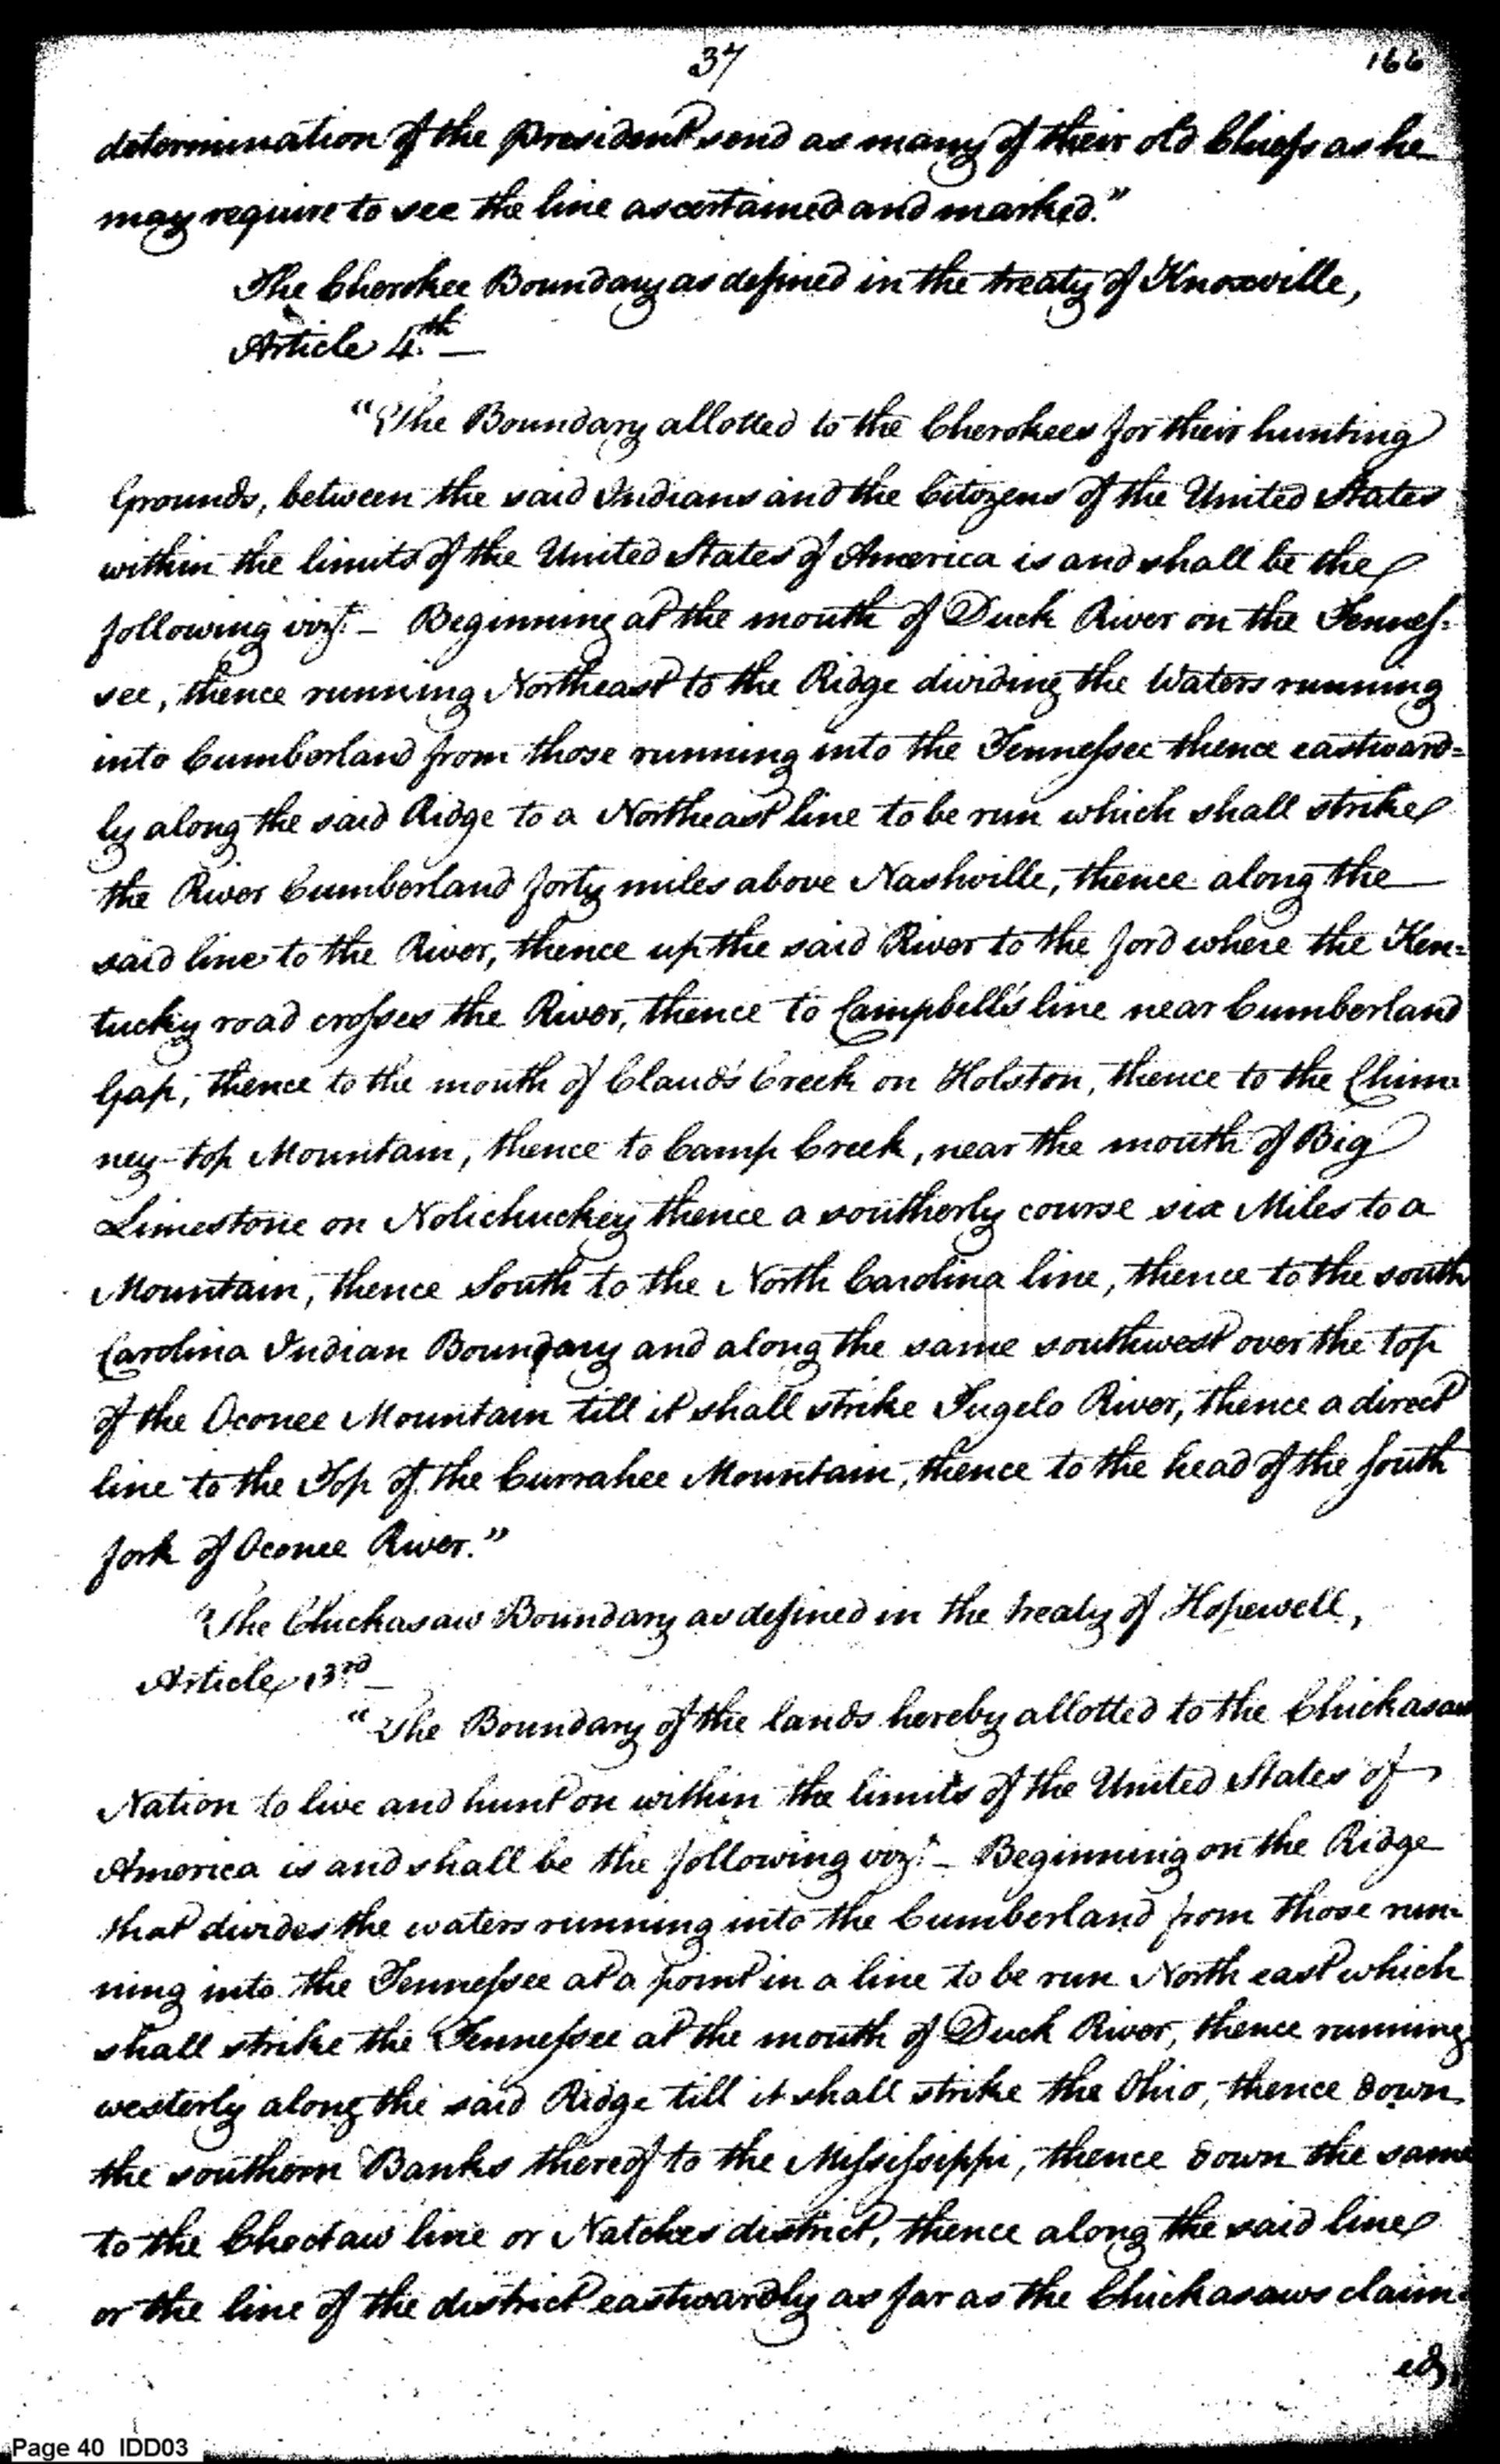 37
166
determination of the President send as many of their old Chiefs as he
may require to see the line ascertained and marked."
The Cherokee Boundary as defined in the treaty of Knoxville,
Article 4.th —
"The Boundary allotted to the Cherokees for their hunting
Grounds, between the said Indians and the Citizens of the United States
within the limits of the United States of America is and shall be the
following vizt. — Beginning at the mouth of Duck River on the Tennes-
see, thence running Northeast to the Ridge dividing the Waters running
into Cumberland from those running into the Tennessee thence eastward=
ly along the said Ridge to a Northeast line to be run which shall strike
the River Cumberland forty miles above Nashville, thence along the
said line to the River, thence up the said River to the ford where the Ken=
tucky road crosses the River, thence to Campbell's line near Cumberland
Gap, thence to the mouth of Claud's Creek on Holston, thence to the Chim
ney-top Mountain, thence to Camp Creek, near the mouth of Big
Limestone on Nolichuckey thence a southerly course six Miles to a
Mountain, thence South to the North Carolina line, thence to the south
Carolina Indian Boundary and along the same southwest over the top
of the Oconee Mountain till it shall strike Tugelo River, thence a direct
line to the Top of the Currahee Mountain, thence to the head of the South
fork of Oconee River."
The Chickasaw Boundary as defined in the treaty of Hopewell,
Article 3rd —
"The Boundary of the lands hereby allotted to the Chickasaw
Nation to live and hunt on within the limits of the United States of
America is and shall be the following vizt. — Beginning on the Ridge
that divides the waters running into the Cumberland from those run-
ning into the Tennessee at a point in a line to be run North east which
shall strike the Tennessee at the mouth of Duck River, thence running
westerly along the said Ridge till it shall strike the Ohio, thence down
the southern Banks thereof to the Mississippi, thence down the same
to the Choctaw line or Natches district, thence along the said line
or the line of the district eastwardly as far as the Chickasaws claim-
ed,
Page 40 IDD03